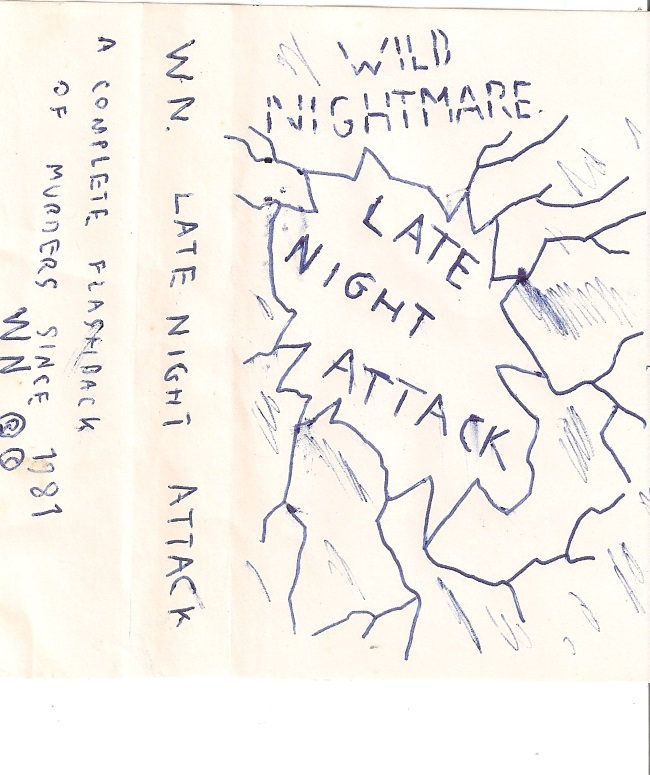 WILD
NIGHTMARE
LATE
NIGHT
ATTACK
W.N. LATE NIGHT ATTACK
A COMPLETE FLASHBACK
OF MURDERS SINCE 1981
WN ® ©